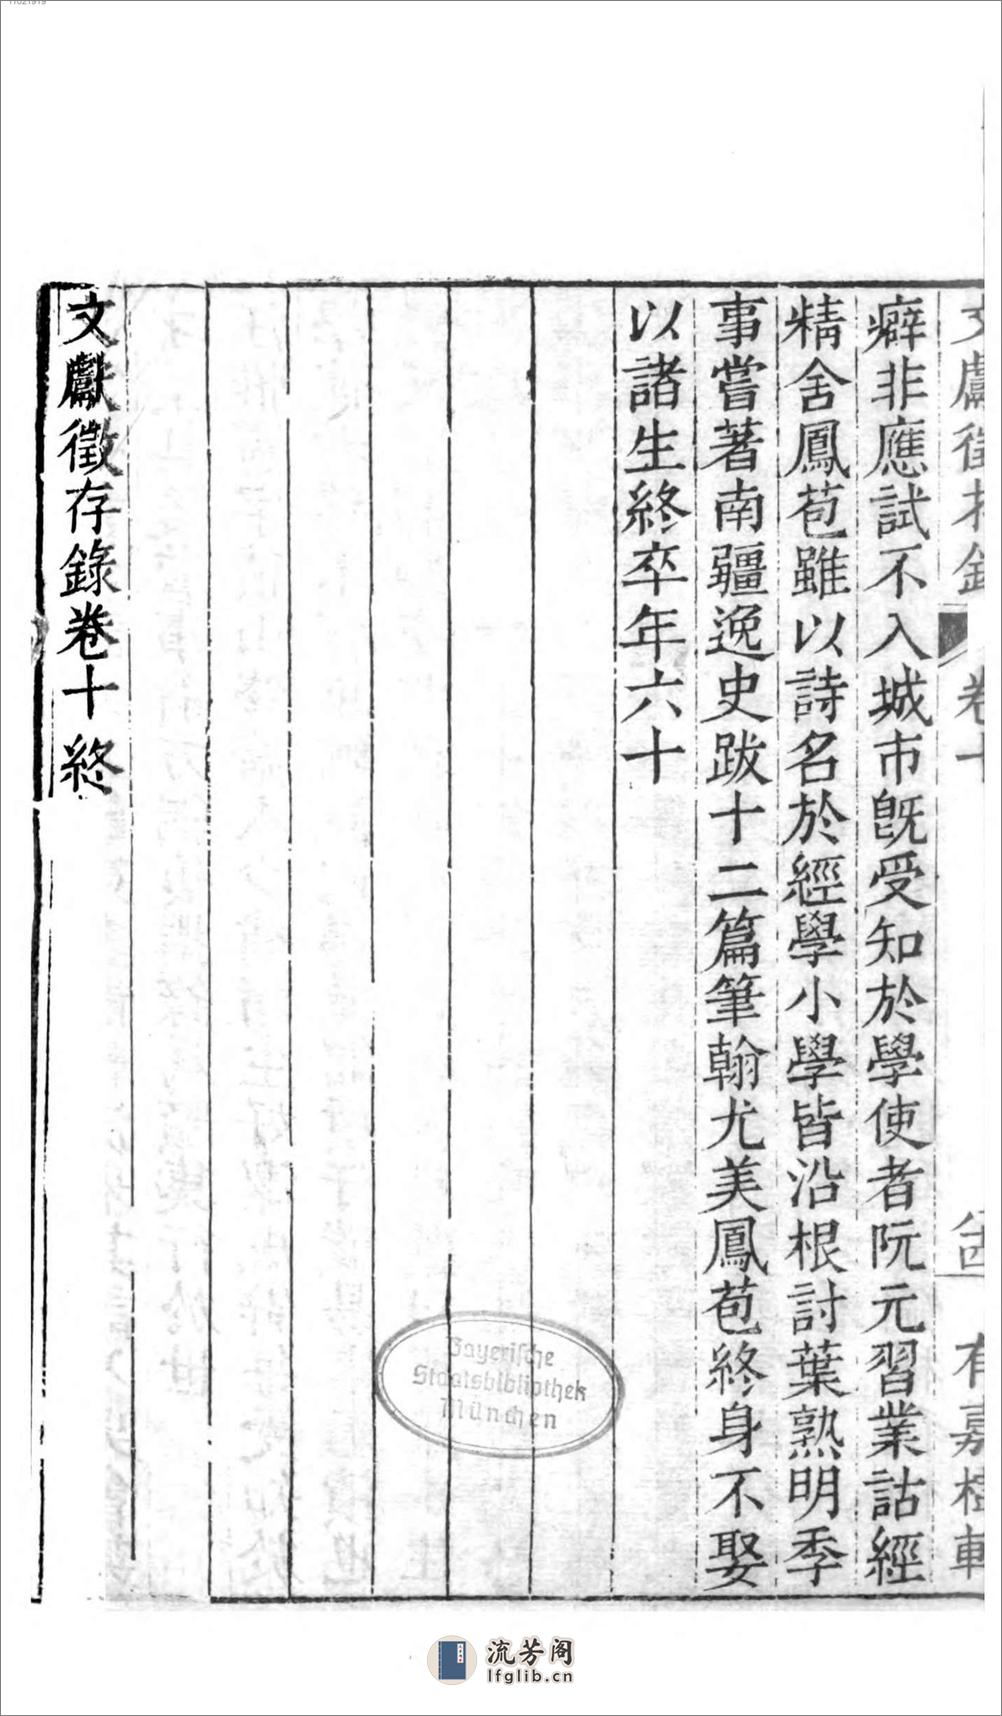 11021919
文獻徵存錄 卷十 有嘉樹軒
癖非應試不入城市既受知於學使者阮元習業詁經
精舍鳳苞雖以詩名於經學小學皆沿根討葉熟明季
事嘗著南疆逸史跋十二篇筆翰尤美鳳苞終身不娶
以諸生終卒年六十
文獻徵存錄卷十終
Bayerische
Staatsbibliothek
München
流芳阁
lfglib.cn